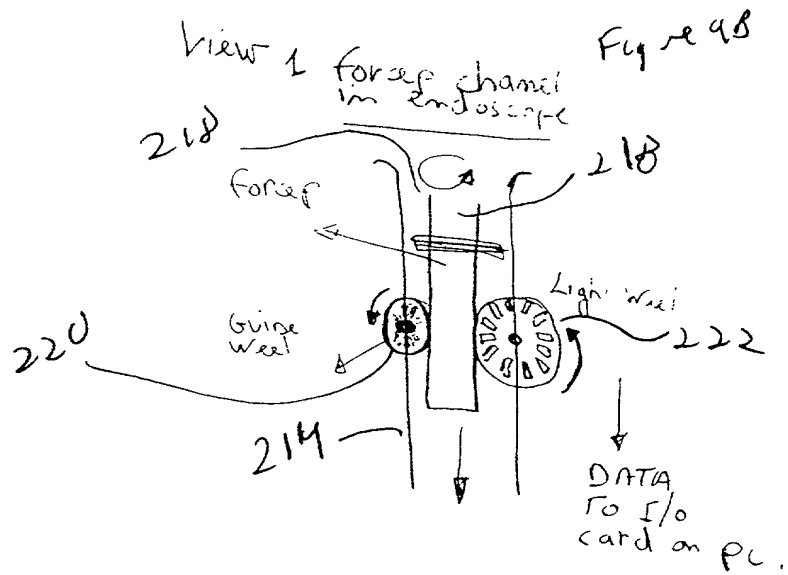 View 1
Figure 9B
forcep chanel
in endoscope
218
218
forcep
Light weel
Guide
weel
220
222
214
DATA
TO I/O
card on PC.